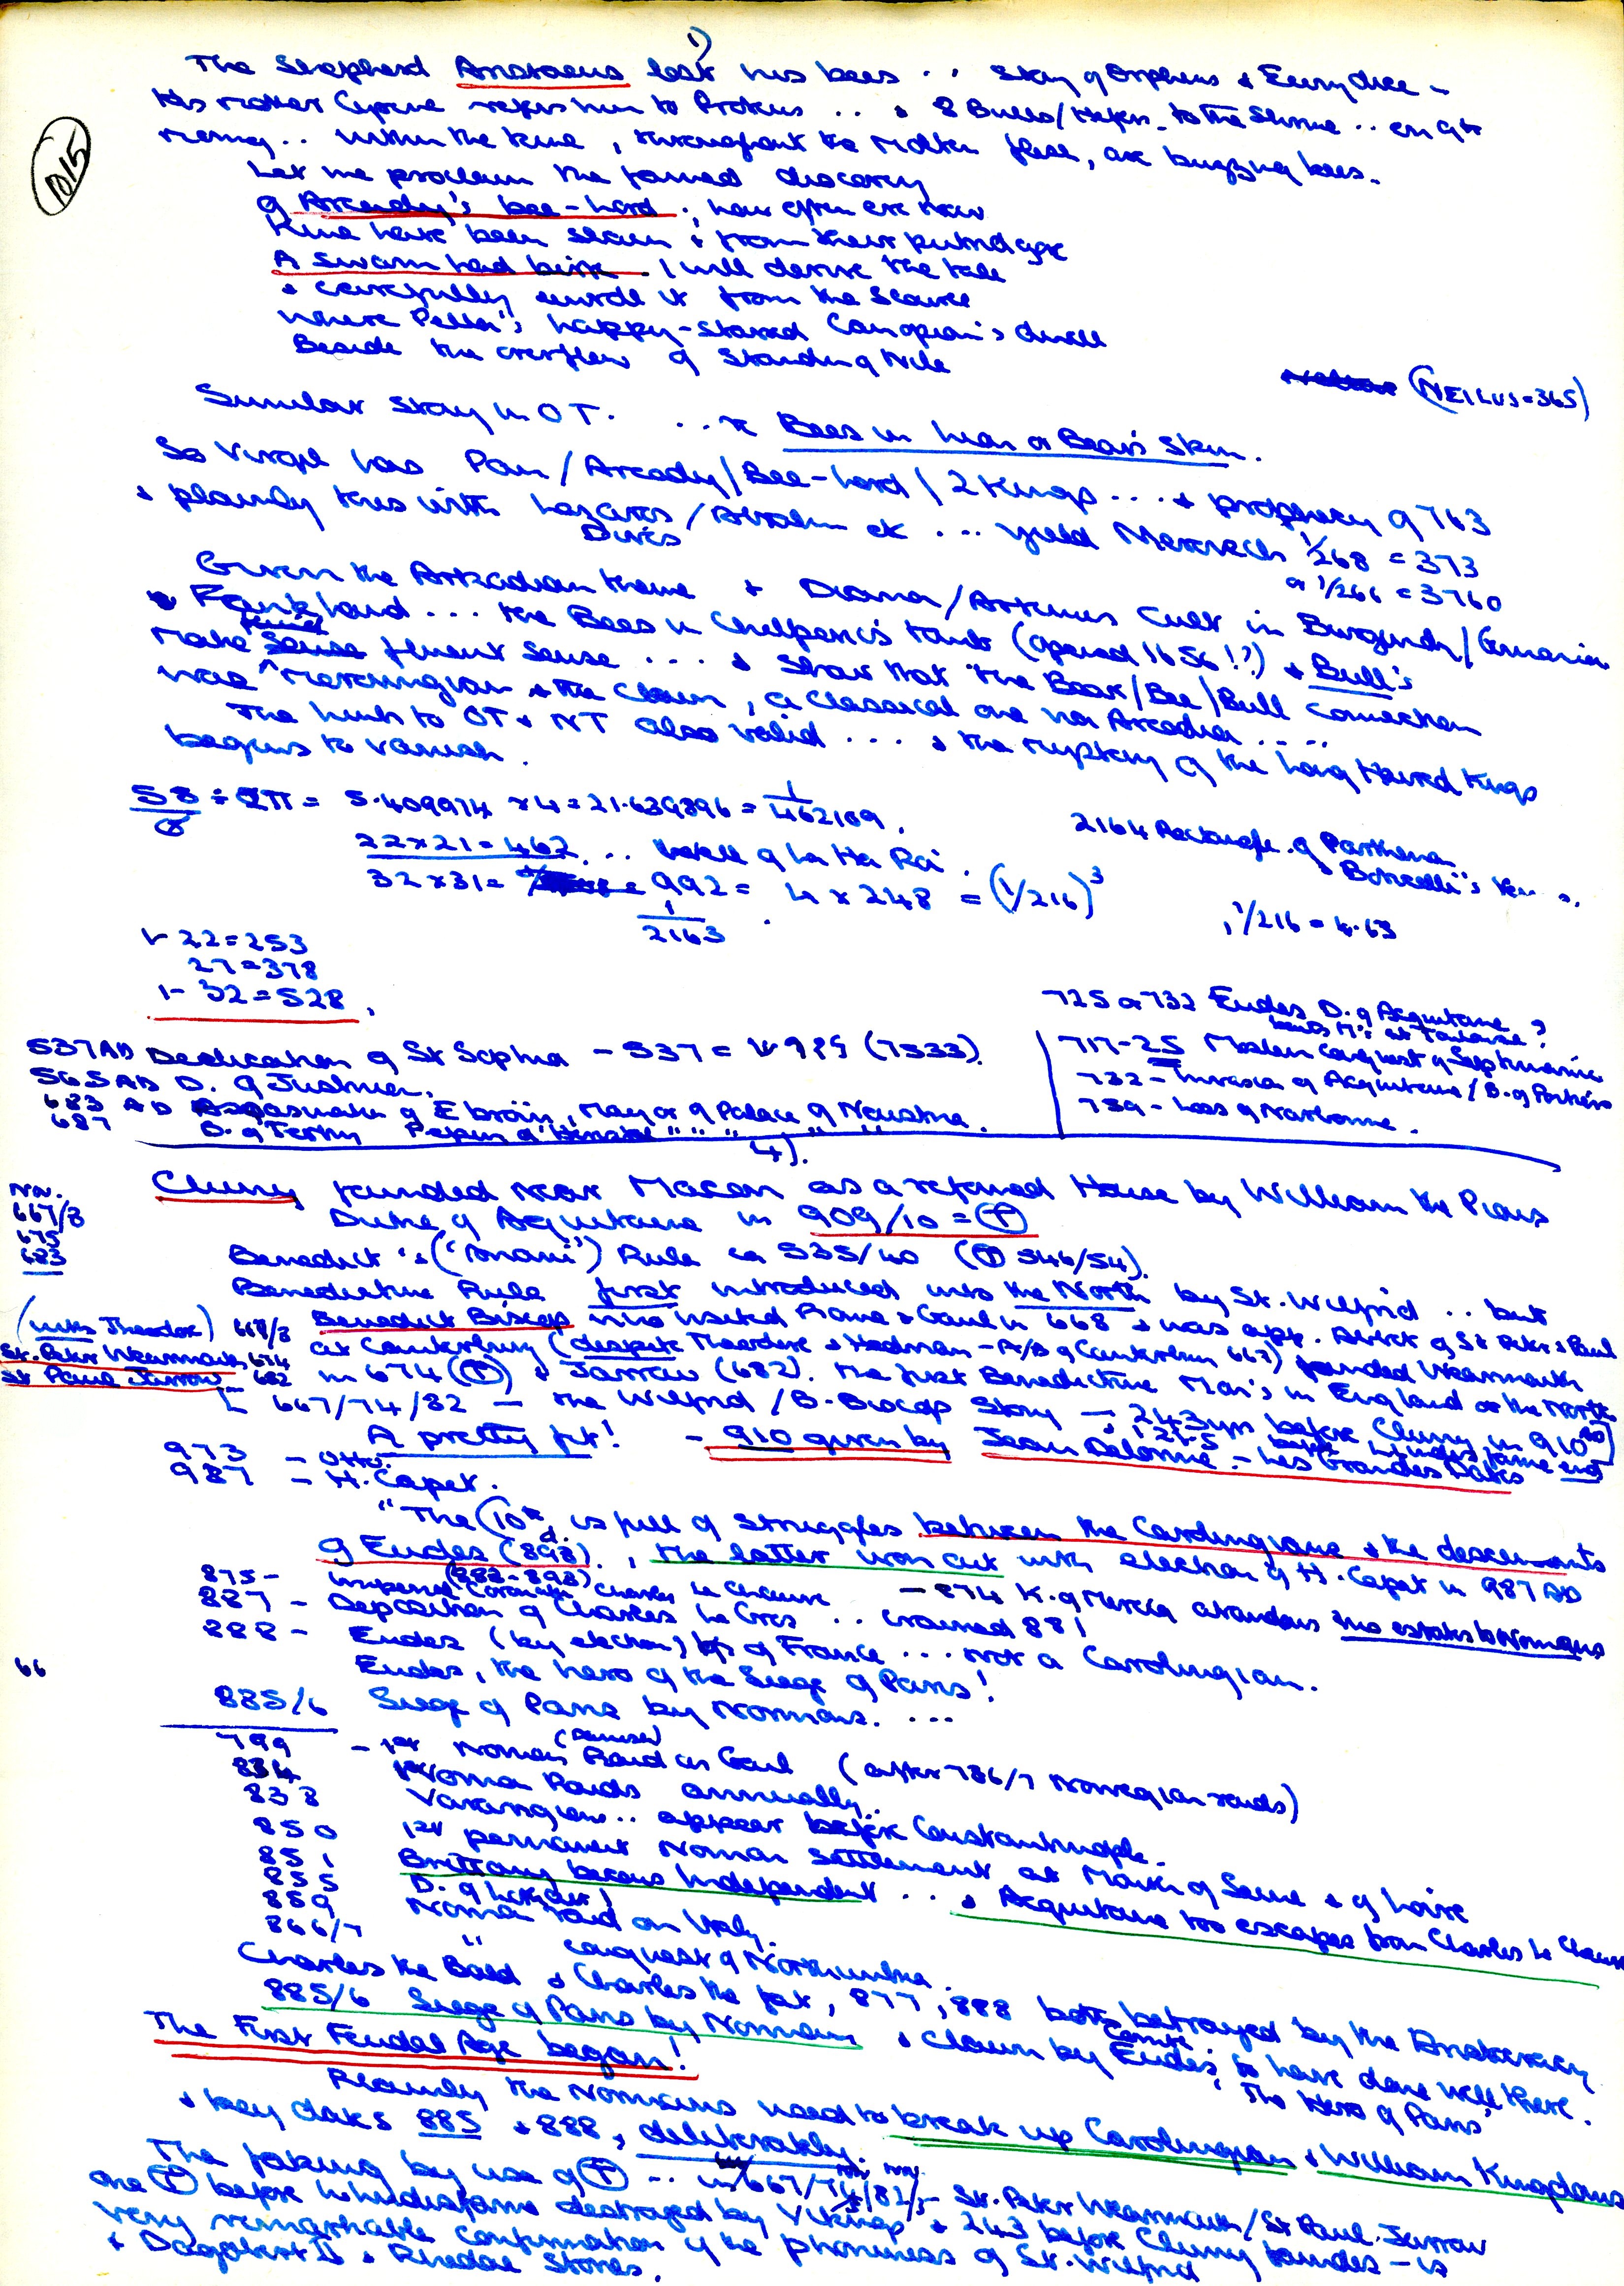 1)
The Shepherd Aristaeus lost his bees .. Story of Orpheus & Eurydice -
His mother Cyrene refers him to Proteus .. & 8 Bulls/Heifers to the Shrine ..
10/5
.. within the kine, throughout the molten flesh, are buzzing bees.
Let me proclaim the famed discovery
of Arcady's bee-lord ; how often ere now
Kine have been slain & from their putrid gore
A swarm had birth. I will derive the tale
& carefully enroll it from the source
where Pella's happy-starred Canopian's dwell
Beside the overflow of Standing Nile
(NEILUS=365)
Similar story in OT. .. Bees in Lion or Bear's Skin.
So Virgil has Pan/Arcady/Bee-lord/2 Kings ... & prophecy of 763
& plainly this with Lazarus/ ... yield 1/268 = 373
Dives
or 1/266 = 3760
Given the Arkadian theme & Diana/Artemis Cult in Burgundy/
... the Bees in Chilperic's tomb (opened 1656!?) & Bull's
make fluent sense ... & show that the Bear/Bee/Bull connection
was Merovingian & the Claim, a Classical one via Arcadia ....
The hints to OT & NT also valid ... & the mystery of the Long Haired Kings
begins to vanish.
÷ 2π = 5.409974 x 4 = 21.639896 = 1/462109.
2164 Rectangle of Parthenon
22x21=462 ... Well of La Hai Roi.
& Botticelli's
32x31= 992 = 4 x 248 = (1/216)³
1/2163
, 1/216 = 4.63
1-22=253
27=378
1-32=528.
725 or 732 Eudes D. of Acquitaine
beats M's at Toulouse?
537AD Dedication of St Sophia - 537 = (7533).
717-25 Moslem Conquest of Septimania
565AD D. of Justinian.
732 - Invasion of Acquitaine/B. of Poitiers
683 AD Assassination of Ebroin, Mayor of Palace of Neustria.
759 - Loss of Narbonne.
687 B. of Tertry Pepin of Heristal " " " " "
4).
Cluny founded near Macon as a reformed House by William the Pious
Duke of Acquitaine in 909/10 = Ⓣ
Nov.
667/8
675
683
Benedict's Rule ca 535/40 (Ⓣ 546/54).
Benedictine Rule first introduced into the North by St. Wilfrid .. but
(with Theodore) 668/8 Benedict Biscop who visited Rome & Gaul in 668 & was app. Abbot of St Peter & Paul
St. Peter Wearmouth 674 at Canterbury (despite Theodore & Hadrian - A/B of Canterbury 667) founded Wearmouth
St Paul Jarrow - 682 in 674 Ⓣ & Jarrow (682). The first Benedictine Mon's in England or the North
667/74/82 - the Wilfrid/B. Biscop Story → 243 yrs before Cluny in 910
& 121.5 before Lindisfarne end
A pretty fit! - 910 given by Jean Delorme - Les Grandes Dates
973 - Otto.
987 - H. Capet.
"The 10th is full of struggles between the Carolingians & the descendants
of Eudes (d. 898), the latter won out with election of H. Capet in 987 AD
(888-898)
875 - Imperial Coronation Charles le Chauve - 874 K. of Mercia abandons his estates to Normans
887 - Deposition of Charles le Gros .. crowned 881
888 - Eudes (by election) K. of France ... not a Carolingian.
66
Eudes, the hero of the Siege of Paris!
885/6 Siege of Paris by Normans. ...
799 - 1st Norman (Danish) Raid in Gaul (after 786/7 Norwegian raids)
834 Norman Raids annually.
838 Varangians .. appear before Constantinople.
850 1st permanent Norman Settlement at Mouth of Seine & of Loire
851 Brittany becomes Independent ... & Acquitaine too escapes from Charles le Chauve
855 D. of Lothair I
859 Norman raid on Italy.
866/7 " conquest of Northumbria.
Charles the Bald & Charles the fat, 877, 888 both betrayed by the Aristocracy
885/6 Siege of Paris by Normans & Claim by Comte Eudes, to have done well there.
The First Feudal Age began! 'The Hero of Paris'
Plainly the Normans used to break up Carolingian & William Kingdoms
& key dates 885 & 888, deliberately.
The faking by use of Ⓣ ... 667/74/82 - St. Peter Wearmouth/St Paul Jarrow
one Ⓣ before Lindisfarne destroyed by Vikings & 243 before Cluny founded - is
very remarkable confirmation of the phoniness of St. Wilfrid
& Dagobert II & Rhedae Stories.